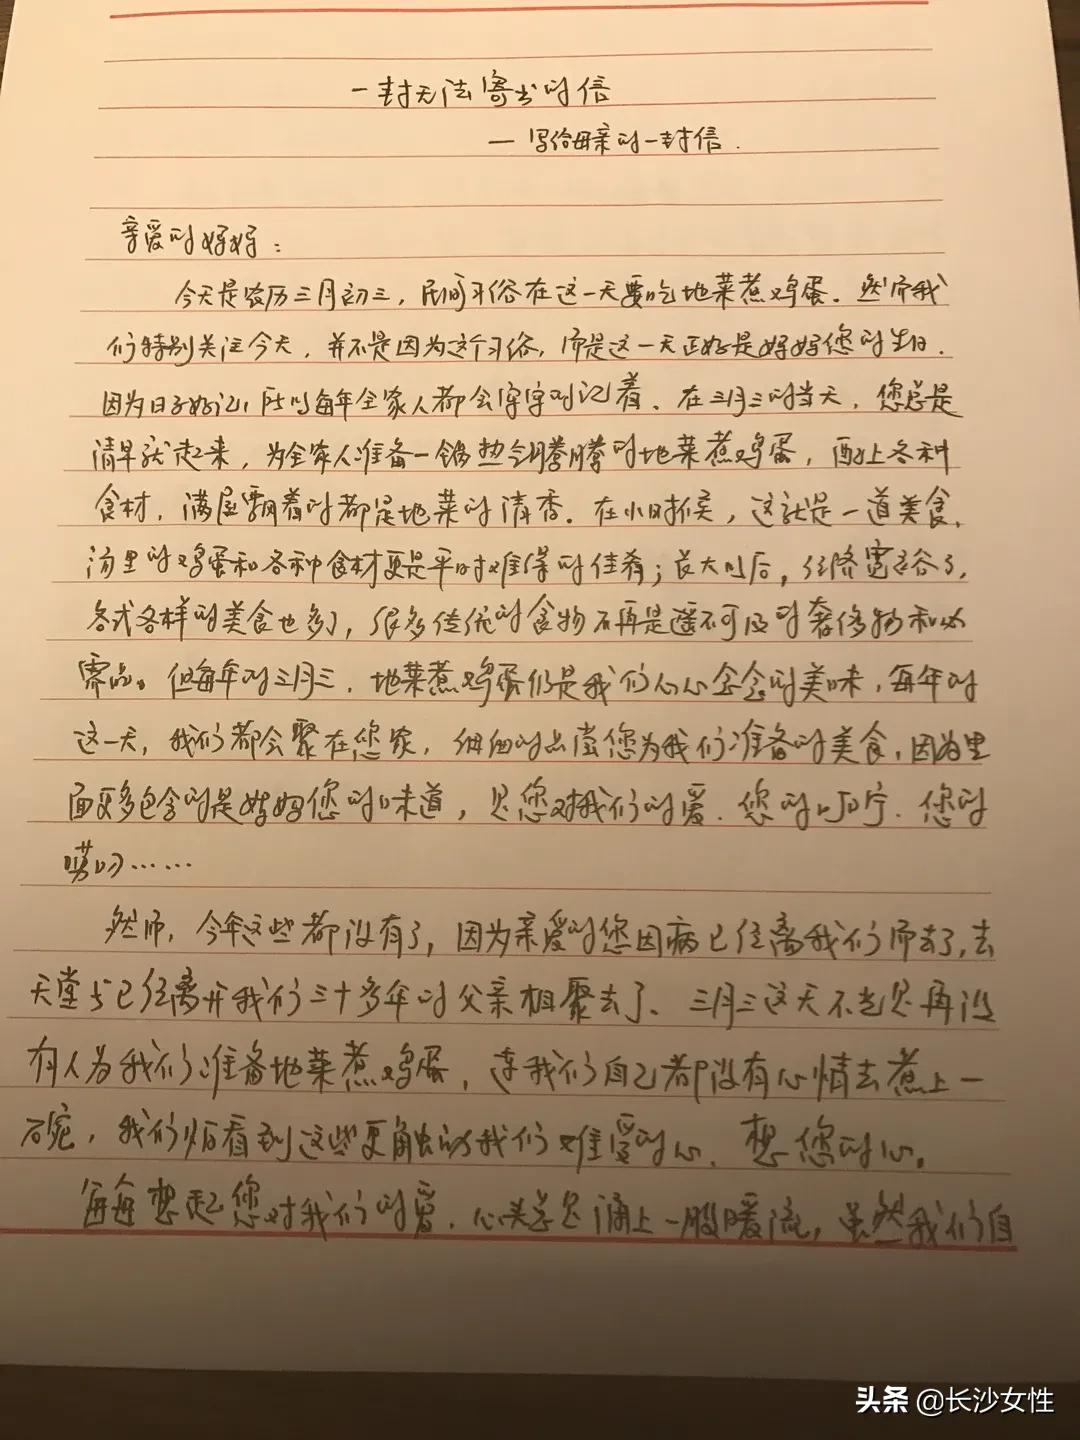 一封无法寄出的信
— 写给母亲的一封信.
亲爱的妈妈:
今天是农历三月初三,民间习俗在这一天要吃地菜煮鸡蛋.然而我
们特别关注今天,并不是因为这个习俗,而是这一天正好是妈妈您的生日.
因为日子好记,所以每年全家人都会牢牢的记着、在三月三的当天,您总是
清早就起来,为全家人准备一锅热气腾腾的地菜煮鸡蛋,配上各种
食材,满屋飘着的都是地菜的清香.在小时候,这就是一道美食,
汤里的鸡蛋和各种食材更是平时难得的佳肴;长大以后,经济宽裕了,
各式各样的美食也多了,很多传统的食物不再是遥不可及的奢侈物和必
需品。但每年的三月三,地菜煮鸡蛋仍是我们心心念念的美味,每年的
这一天,我们都会聚在您家,细细的品尝您为我们准备的美食,因为里
面更多包含的是妈妈您的味道,是您对我们的爱.您的叮咛.您的
唠叨……
然而,今年这些都没有了,因为亲爱的您因病已经离我们而去了,去
天堂与已经离开我们三十多年的父亲相聚去了、三月三这天不光是再没
有人为我们准备地菜煮鸡蛋,连我们自己都没有心情去煮上一
碗,我们怕看到这些更触动我们难受的心、想您的心。
每每想起您对我们的爱,心头总是涌上一股暖流,虽然我们自
头条 @长沙女性